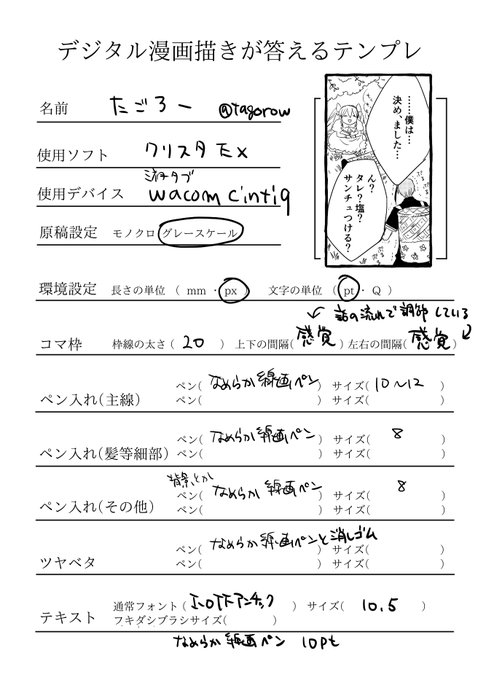 デジタル漫画描きが答えるテンプレ
名前 たごろー @tagorow
使用ソフト クリスタEX
液タブ
使用デバイス wacom Cintiq
原稿設定 モノクロ グレースケール
……僕は…
決め、ました…
ん?
タレ?塩?
サンチュつける?
環境設定 長さの単位 ( mm ・ px ) 文字の単位 ( pt ・ Q )
話の流れで調節している
コマ枠 枠線の太さ( 20 ) 上下の間隔( 感覚 )左右の間隔( 感覚 )
ペン( なめらか線画ペン ) サイズ( 10〜12 )
ペン入れ(主線) ペン( ) サイズ( )
ペン( なめらか線画ペン ) サイズ( 8 )
ペン入れ(髪等細部) ペン( ) サイズ( )
背景とか
ペン( なめらか線画ペン ) サイズ( 8 )
ペン入れ(その他) ペン( ) サイズ( )
なめらか線画ペンと消しゴム
ペン( ) サイズ( )
ツヤベタ ペン( ) サイズ( )
テキスト 通常フォント( I-OTFアンチック ) サイズ( 10.5 )
フキダシブラシサイズ( )
なめらか線画ペン 10pt